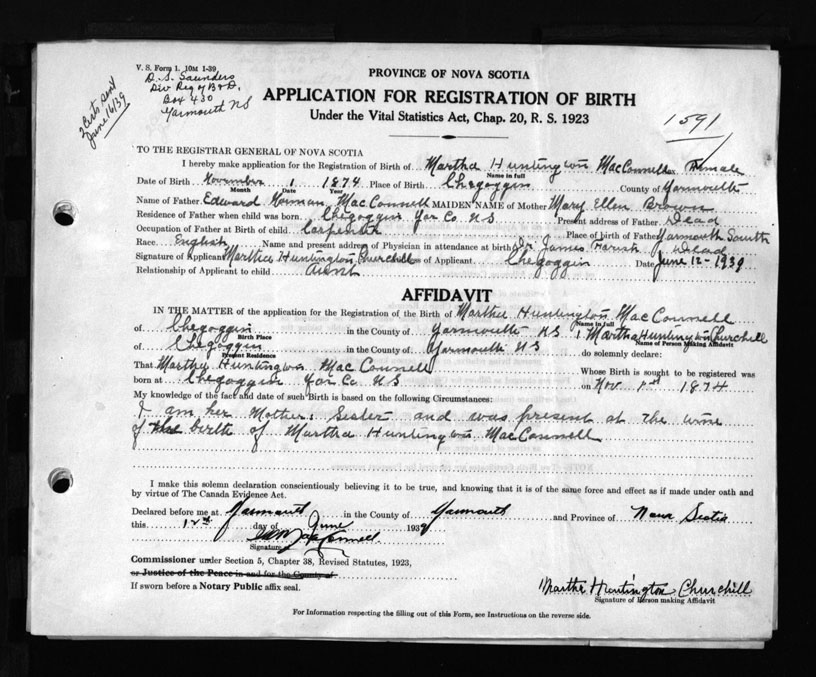 V. S. Form 1. 10M 1-39
D. S. Saunders
Div Reg of B & D,
Box 430
Yarmouth NS
2 Certs sent
June 16/39
PROVINCE OF NOVA SCOTIA
APPLICATION FOR REGISTRATION OF BIRTH
Under the Vital Statistics Act, Chap. 20, R. S. 1923
1591
TO THE REGISTRAR GENERAL OF NOVA SCOTIA
I hereby make application for the Registration of Birth of Martha Huntington MacConnell Sex Female
Name in full
Date of Birth November 1 1874 Place of Birth Chegoggin County of Yarmouth
Month Date Year
Name of Father Edward Norman MacConnell MAIDEN NAME of Mother Mary Ellen Brown
Residence of Father when child was born Chegoggin Yar Co. N S Present address of Father Dead
Occupation of Father at Birth of child Carpenter Place of birth of Father Yarmouth South
Race English Name and present address of Physician in attendance at birth Dr. James Dead
Signature of Applicant Martha Huntington Churchill Address of Applicant Chegoggin Date June 12 - 1939
Relationship of Applicant to child Aunt
AFFIDAVIT
IN THE MATTER of the application for the Registration of the Birth of Martha Huntington MacConnell
Name in full
of Chegoggin in the County of Yarmouth N S I Martha Huntington Churchill
Birth Place Name of Person Making Affidavit
of Chegoggin in the County of Yarmouth N S do solemnly declare:
Present Residence
That Martha Huntington MacConnell Whose Birth is sought to be registered was
born at Chegoggin Yar Co. N S on Nov 1st 1874
My knowledge of the fact and date of such Birth is based on the following Circumstances:
I am her Mother's Sister and was present at the time
of the birth of Martha Huntington MacConnell
I make this solemn declaration conscientiously believing it to be true, and knowing that it is of the same force and effect as if made under oath and
by virtue of The Canada Evidence Act.
Declared before me at Yarmouth in the County of Yarmouth and Province of Nova Scotia
this 12th day of June 1939
MacConnell
Signature
Commissioner under Section 5, Chapter 38, Revised Statutes, 1923,
or Justice of the Peace in and for the County of
If sworn before a Notary Public affix seal.
Martha Huntington Churchill
Signature of Person making Affidavit
For Information respecting the filling out of this Form, see Instructions on the reverse side.